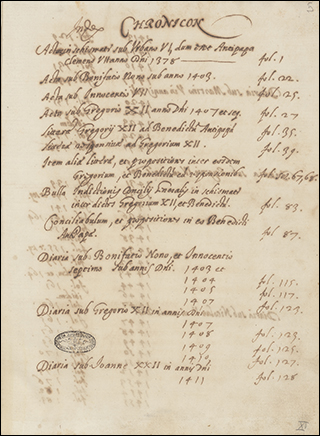 5
Index CHRONICON
Acta in schismati sub Urbano VI, dum esse Antipapa
Clemens VII anno Dni 1378 fol. 1
Acta sub Bonifacio Nono sub anno 1403. fol. 22.
Acta sub Innocentio VII fol. 25.
Acta sub Gregorio XII anno Dni 1407 et seq. fol. 27
Litera Gregorij XII ad Benedictum Antipapā fol. 35.
ad Gregorium XII. fol. 39.
Item aliæ literæ, et propositiones inter eosdem
Gregorium, et Benedictum et fol. 67, 68.
Bulla Indictionis Concilij in schismate
inter dictos Gregorium XII, et Benedictū. fol. 83.
Conciliabulum, et propositiones in eo Benedicti
Antipapæ. fol. 87.
Diaria sub Bonifacio Nono, et Innocentio
septimo sub annis Dni. 1403 et
1404 fol. 115.
1405 fol. 117.
1407 fol. 123
Diaria sub Gregorio XII in annis Dni
1407
1408 fol. 123.
1409 fol. 125.
1410 fol. 127.
Diaria sub Joanne XXII in anno Dni
1411 fol. 128
XI